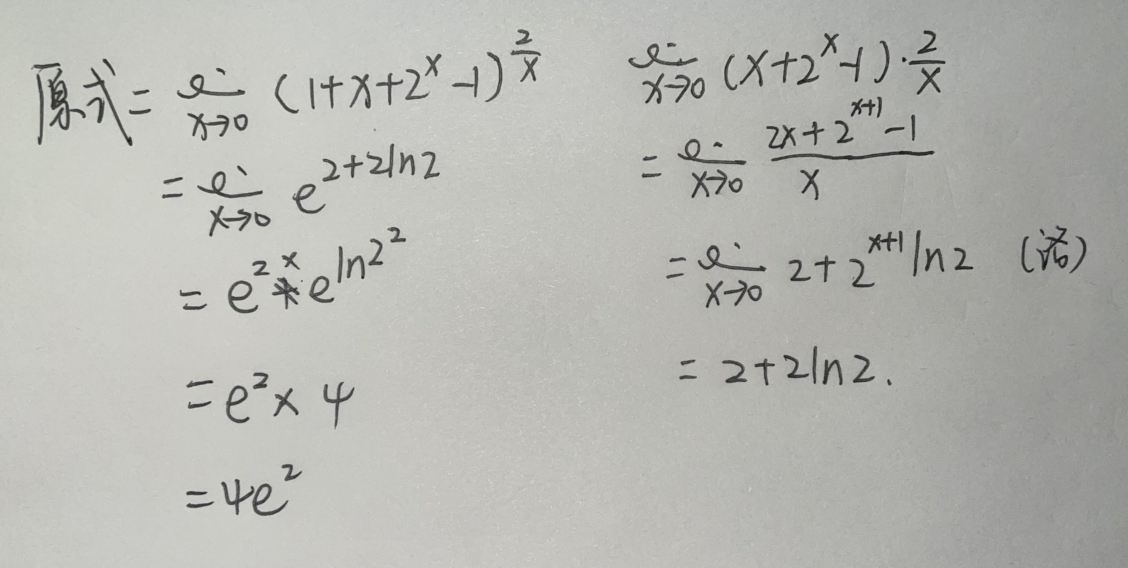 原式 = lim x→0 (1+x+2^x-1)^{2/x}
= lim x→0 e^{2+2ln2}
= e^2 × e^{ln2^2}
= e^2 × 4
= 4e^2
lim x→0 (x+2^x-1)·2/x
= lim x→0 (2x+2^{x+1}-1)/x
= lim x→0 2+2^{x+1}ln2 (洛)
= 2+2ln2.